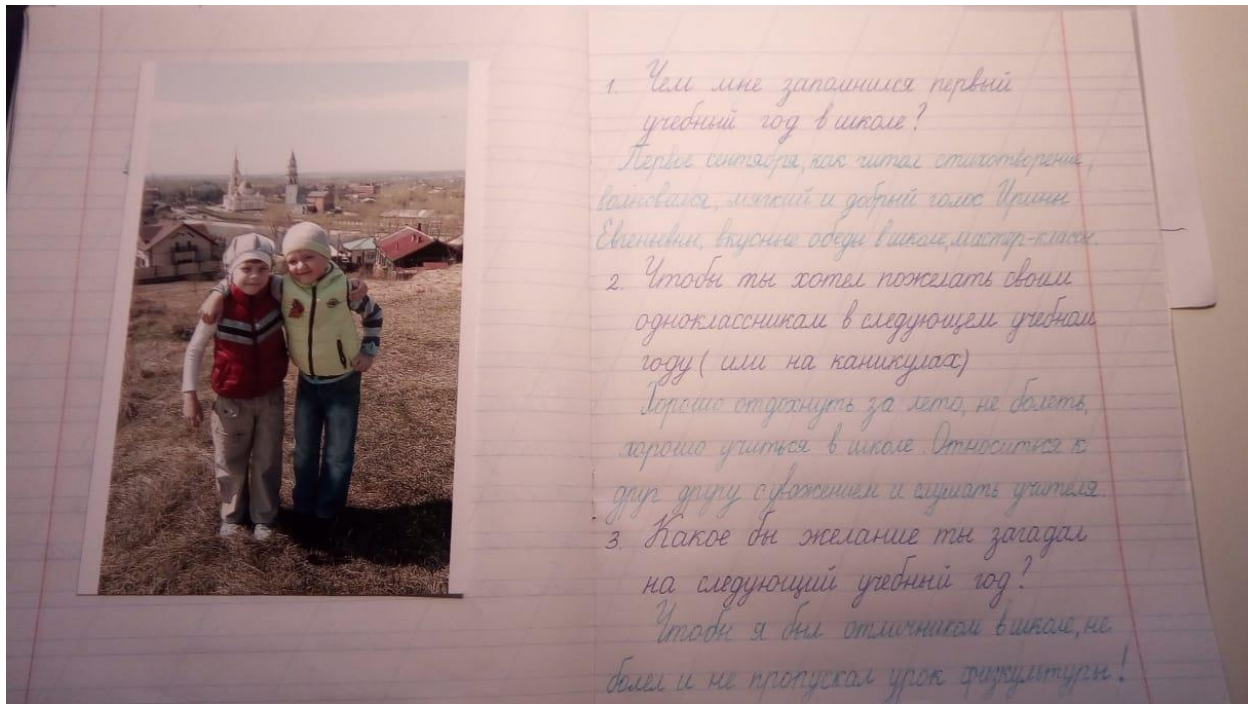 1. Чем мне запомнился первый
учебный год в школе?
Первое сентября, как читал стихотворение,
волновался, мягкий и добрый голос Ирины
Евгеньевны, вкусные обеды в школе, мастер-классы.
2. Чтобы ты хотел пожелать своим
одноклассникам в следующем учебном
году (или на каникулах)
Хорошо отдохнуть за лето, не болеть,
хорошо учиться в школе. Относиться к
друг другу с уважением и слушать учителя.
3. Какое бы желание ты загадал
на следующий учебный год?
Чтобы я был отличником в школе, не
болел и не пропускал урок физкультуры!